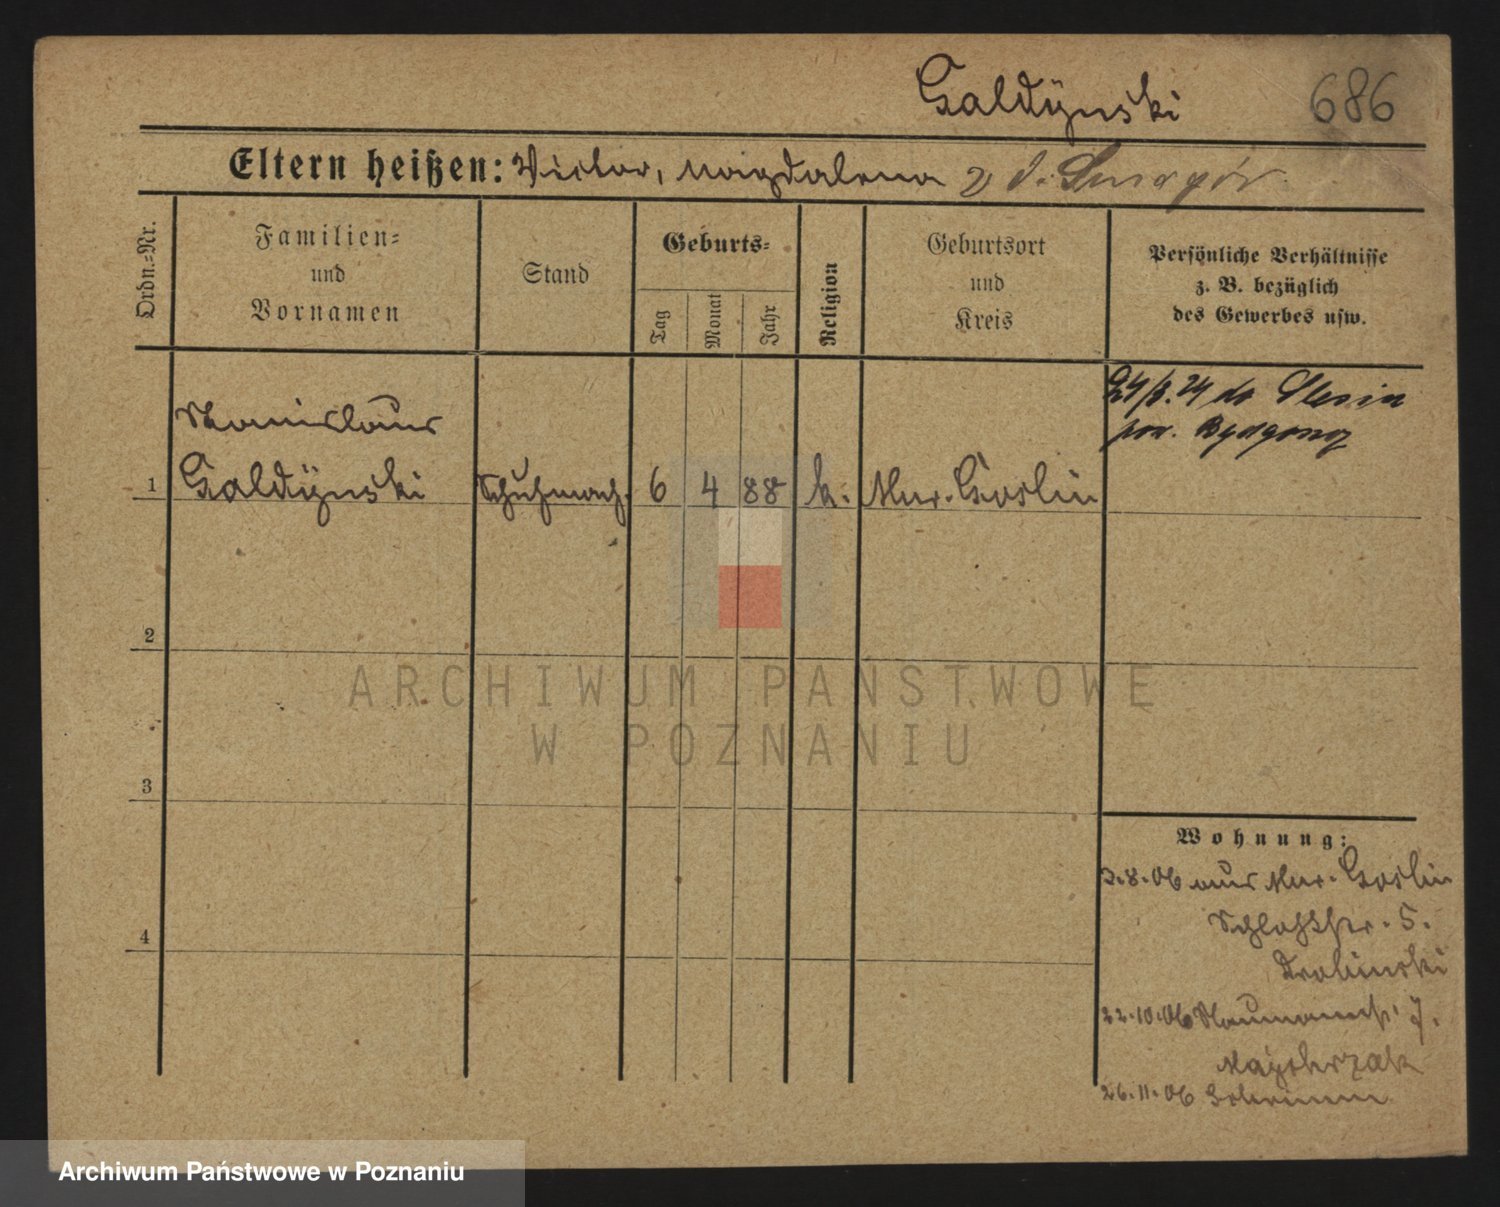 Galdÿnski
686
Eltern heißen: Victor, Magdalena
Ordn.=Nr.
Familien=
und
Vornamen
Stand
Geburts=
Tag
Monat
Jahr
Religion
Geburtsort
und
Kreis
Persönliche Verhältnisse
z. B. bezüglich
des Gewerbes usw.
Stanislaus
1 Galdÿnski Schuhmach. 6 4 88 k. Mur. Goslin
24/3. 24 do Slesin
pow. Bydgoszcz
2
3
4
Wohnung:
3.8.06 aus Mur. Goslin
Schloßstr. 5.
Drabinski
22.10.06 Naumannst. 7.
Majcherzak
26.11.06 Schrimm
ARCHIWUM PAŃSTWOWE
W POZNANIU
Archiwum Państwowe w Poznaniu